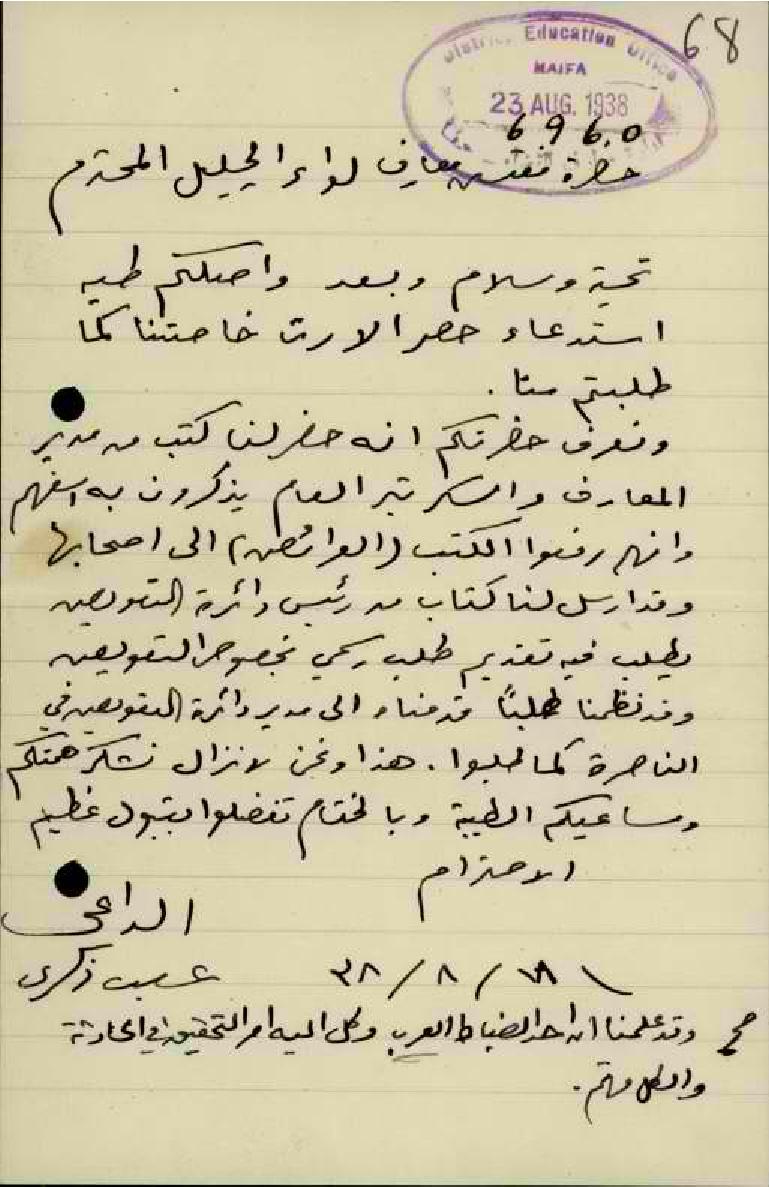 68
District Education Office
HAIFA
23 AUG. 1938
6960
حضرة مفتش معارف لواء الجليل المحترم
تحية وسلام وبعد واصلكم طيه
استدعاء حصر الارث خاصتنا كما
طلبتم منا.
ونعرف حضرتكم انه حضر لنا كتب من مدير
المعارف والسكرتير العام يذكرون به اسفهم
وانهم رفعوا الكتب (العرائض) الى اصحابها
وقد ارسل لنا كتاب من رئيس دائرة التعويض
يطلب فيه تقديم طلب رسمي بخصوص التعويض
وقد نظمنا طلبًا قدمناه الى مدير دائرة التعويض في
الناصرة كما طلبوا. هذا ونحن لا نزال نشكر همتكم
ومساعيكم الطيبة وبالختام تفضلوا بقبول عظيم
الاحترام
الداعي
١٨/٨/٣٨ ذكرى
وقد علمنا ان احد الضباط العرب وكل اليه امر التحقيق في الحادثة
والكل مهتم.